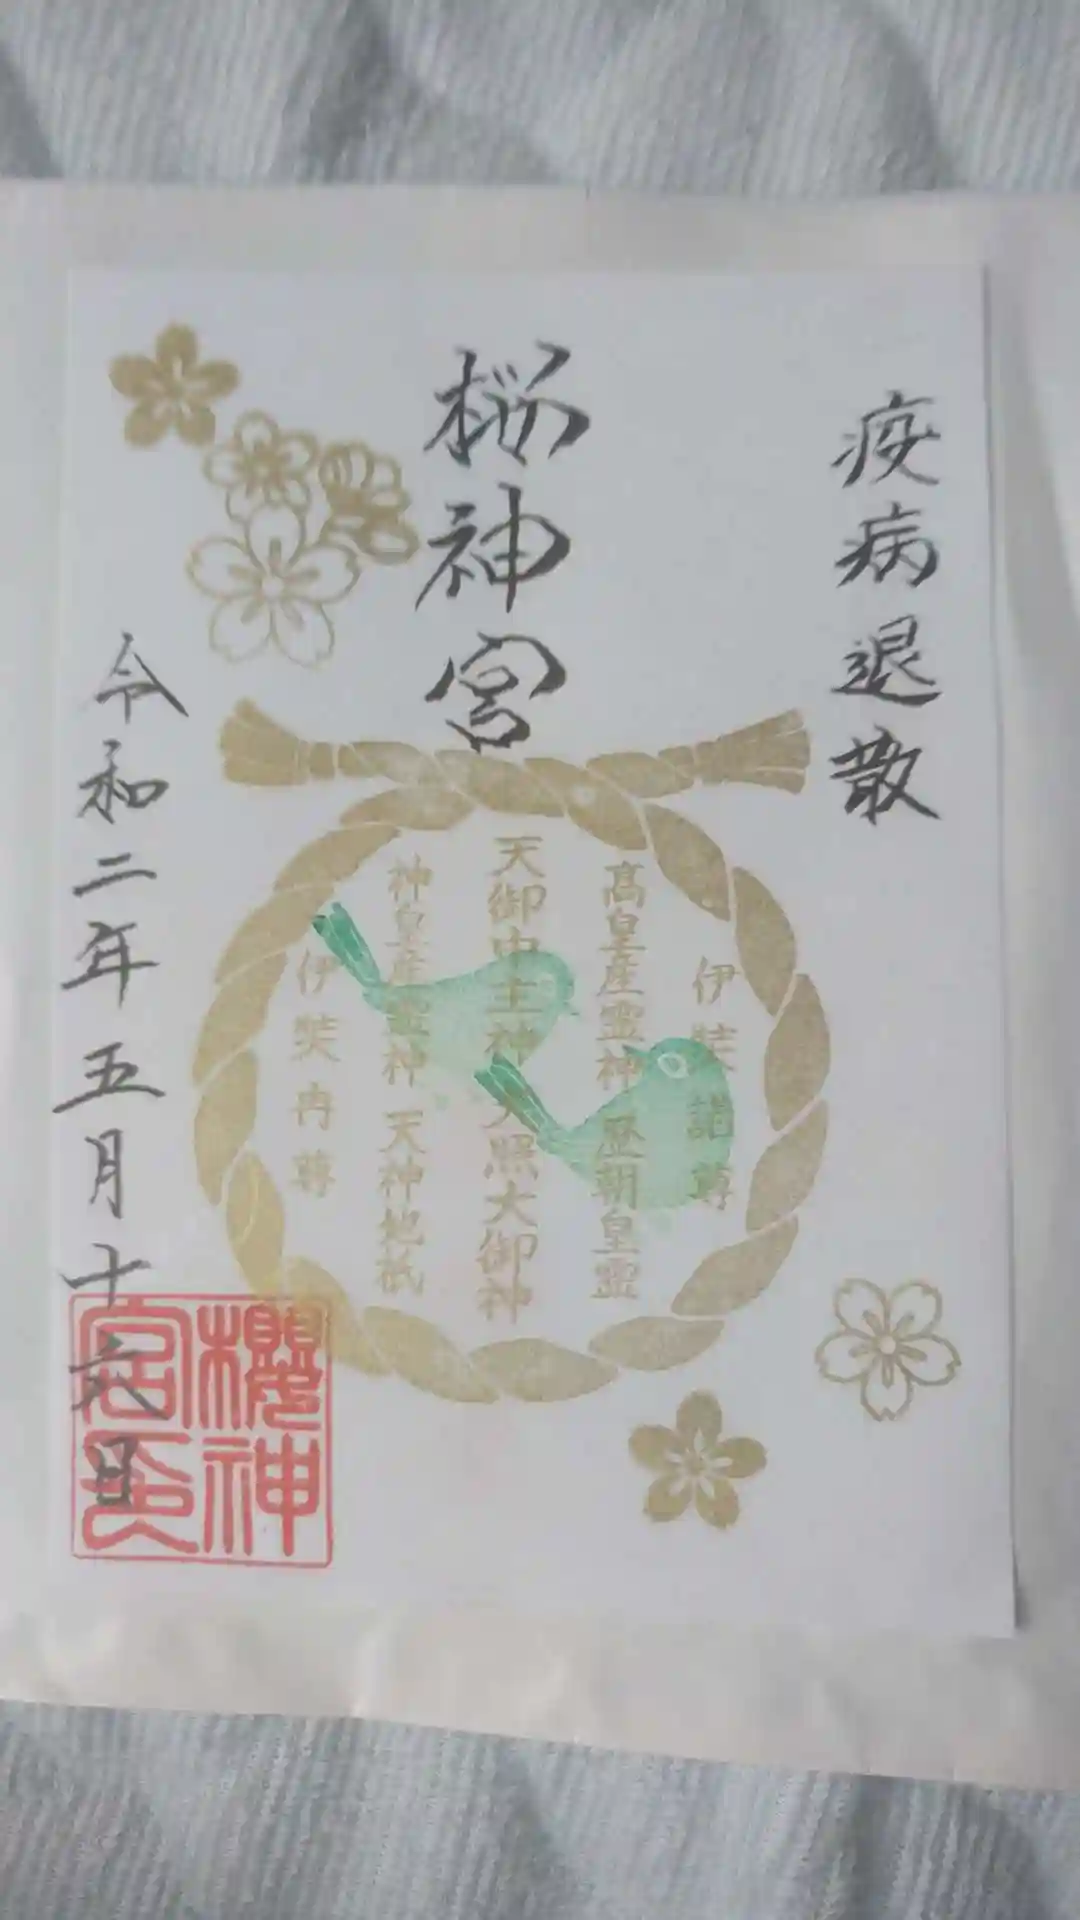 疫病退散
桜神宮
伊弉諾尊
高皇産霊神 歴朝皇霊
天御中主神 天照大御神
神皇産霊神 天神地祇
伊弉冉尊
令和二年五月十六日
櫻神
宮印